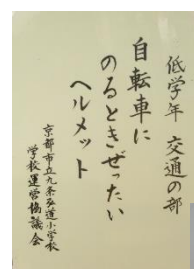 低学年 交通の部
自転車に
のるときぜったい
ヘルメット
京都市立九条弘道小学校
学校運営協議会